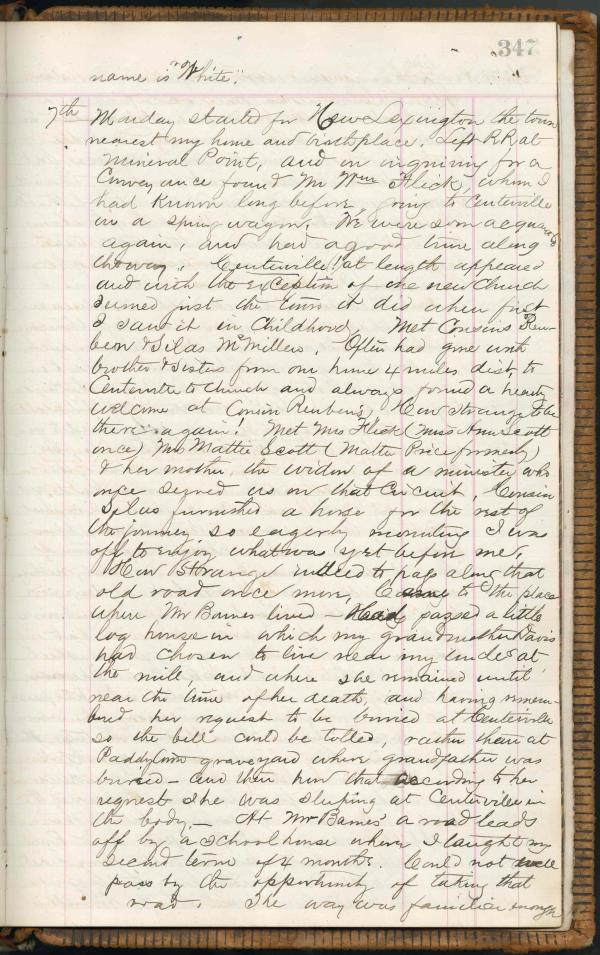 347
name is "White".
7th Monday started for New Lexington the town
nearest my home and birthplace. Left R.R. at
Mineral Point, and on inquiring for a
Conveyance found Mr Wm Flick, whom I
had known long before, going to Centerville
in a spring wagon. We were soon acquainted
again, and had a good time along
the way. Centerville! at length appeared
and with the exception of one new Church
seemed just the town it did when first
I saw it in Childhood. Met Cousins Reu-
ben & Silas McMillen. Often had gone with
brother & Sisters from our home 4 miles dist, to
Centerville to church and always found a hearty
welcome at Cousin Reuben's, How strange to be
there again! Met Mrs Flick (Miss Ann Scott
once) Mrs Mattie Scott (Mattie Price formerly)
& her mother, the widow of a minister who
once served us on that Circuit, Cousin
Silas furnished a horse for the rest of
the journey, so eagerly mounting I was
off to enjoy what was yet before me.
How strange indeed to pass along that
old road once more, Came to the place
where Mr Barnes lived – passed a little
log house in which my grandmother Davis
had chosen to live near my uncles at
the mill, and where she remained until
near the time of her death, and having remem-
bered her request to be buried at Centerville
so the bell could be tolled, rather than at
Paddytown graveyard where grandfather was
buried – and then how that according to her
request she was sleeping at Centerville in
the body. – At Mr Barnes' a road leads
off by a school house where I taught my
second term of 4 months. Could not well
pass by the opportunity of taking that
road. The way was familiar enough